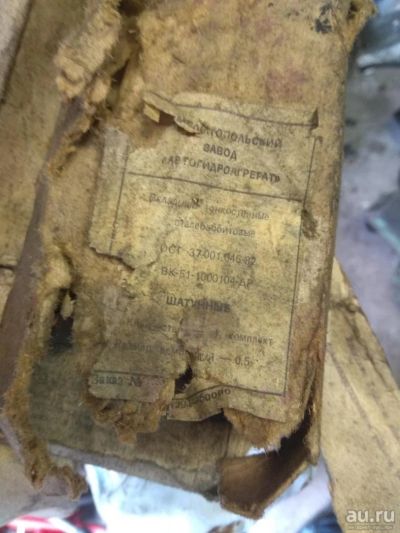 МЕЛИТОПОЛЬСКИЙ
ЗАВОД
«АВТОГИДРОАГРЕГАТ»
Вкладыши тонкостенные
сталебаббитовые
ОСТ 37.001.046-82
ВК-51-1000104-АР
ШАТУННЫЕ
Количество 1 комплект
Размер — 0,5
Заказ №
au.ru